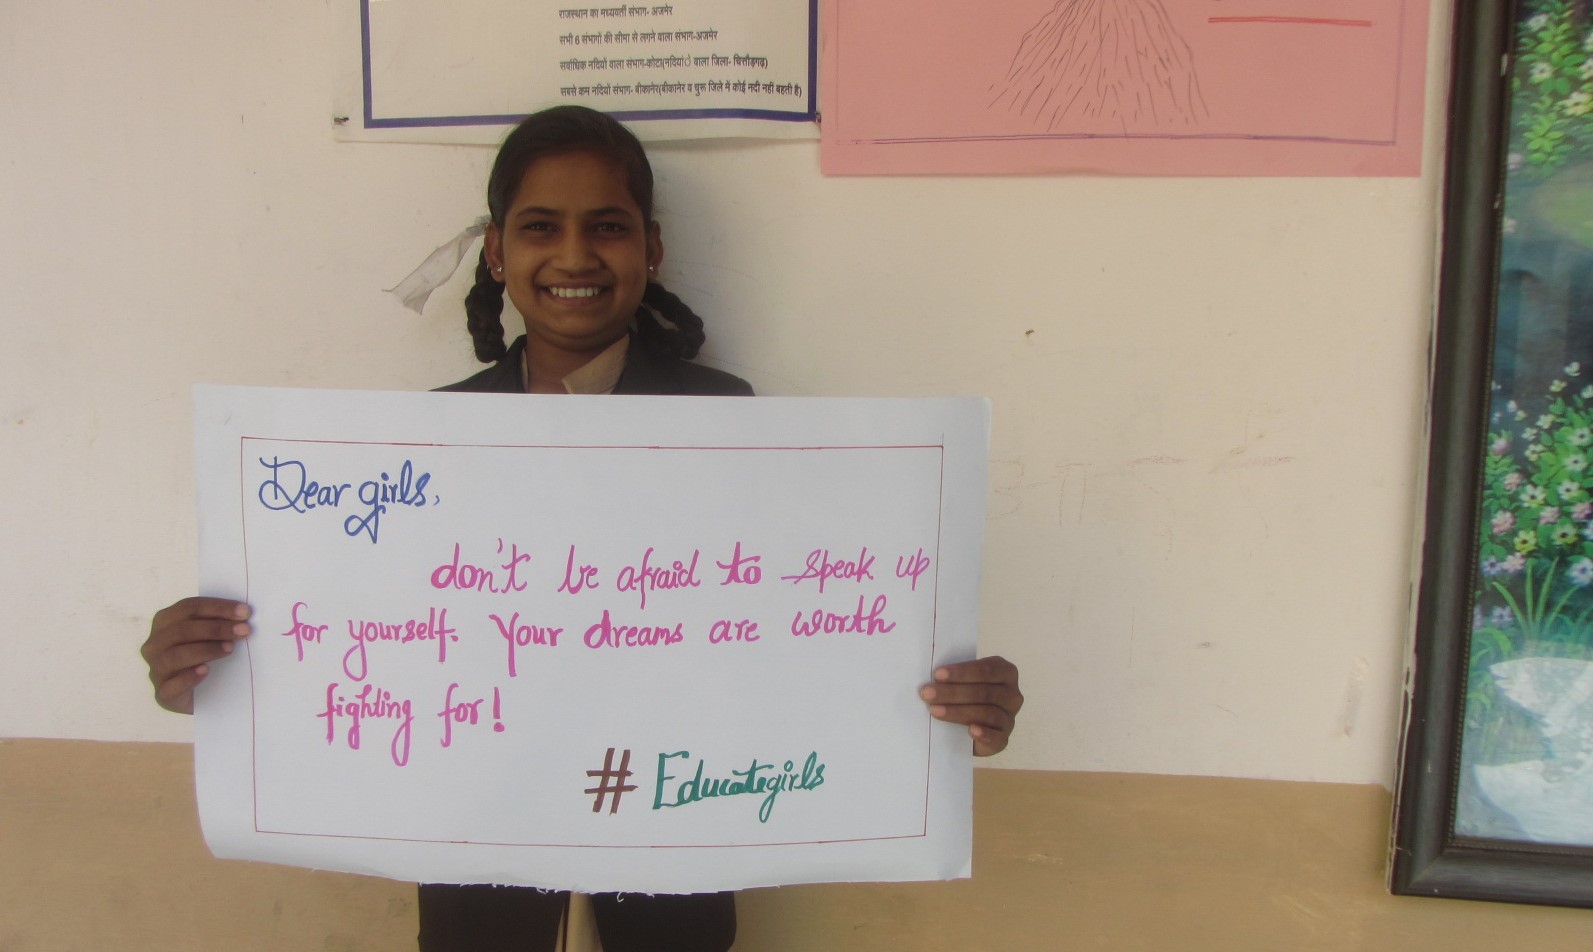 राजस्थान का मध्यवर्ती संभाग- अजमेर
सभी 6 संभागों की सीमा से लगने वाला संभाग-अजमेर
सर्वाधिक नदियों वाला संभाग-कोटा(नदियांे वाला जिला- चित्तौड़गढ़)
सबसे कम नदियों संभाग- बीकानेर(बीकानेर व चुरू जिले में कोई नदी नहीं बहती है)
Dear girls,
don't be afraid to speak up
for yourself. Your dreams are worth
fighting for!
# Educategirls